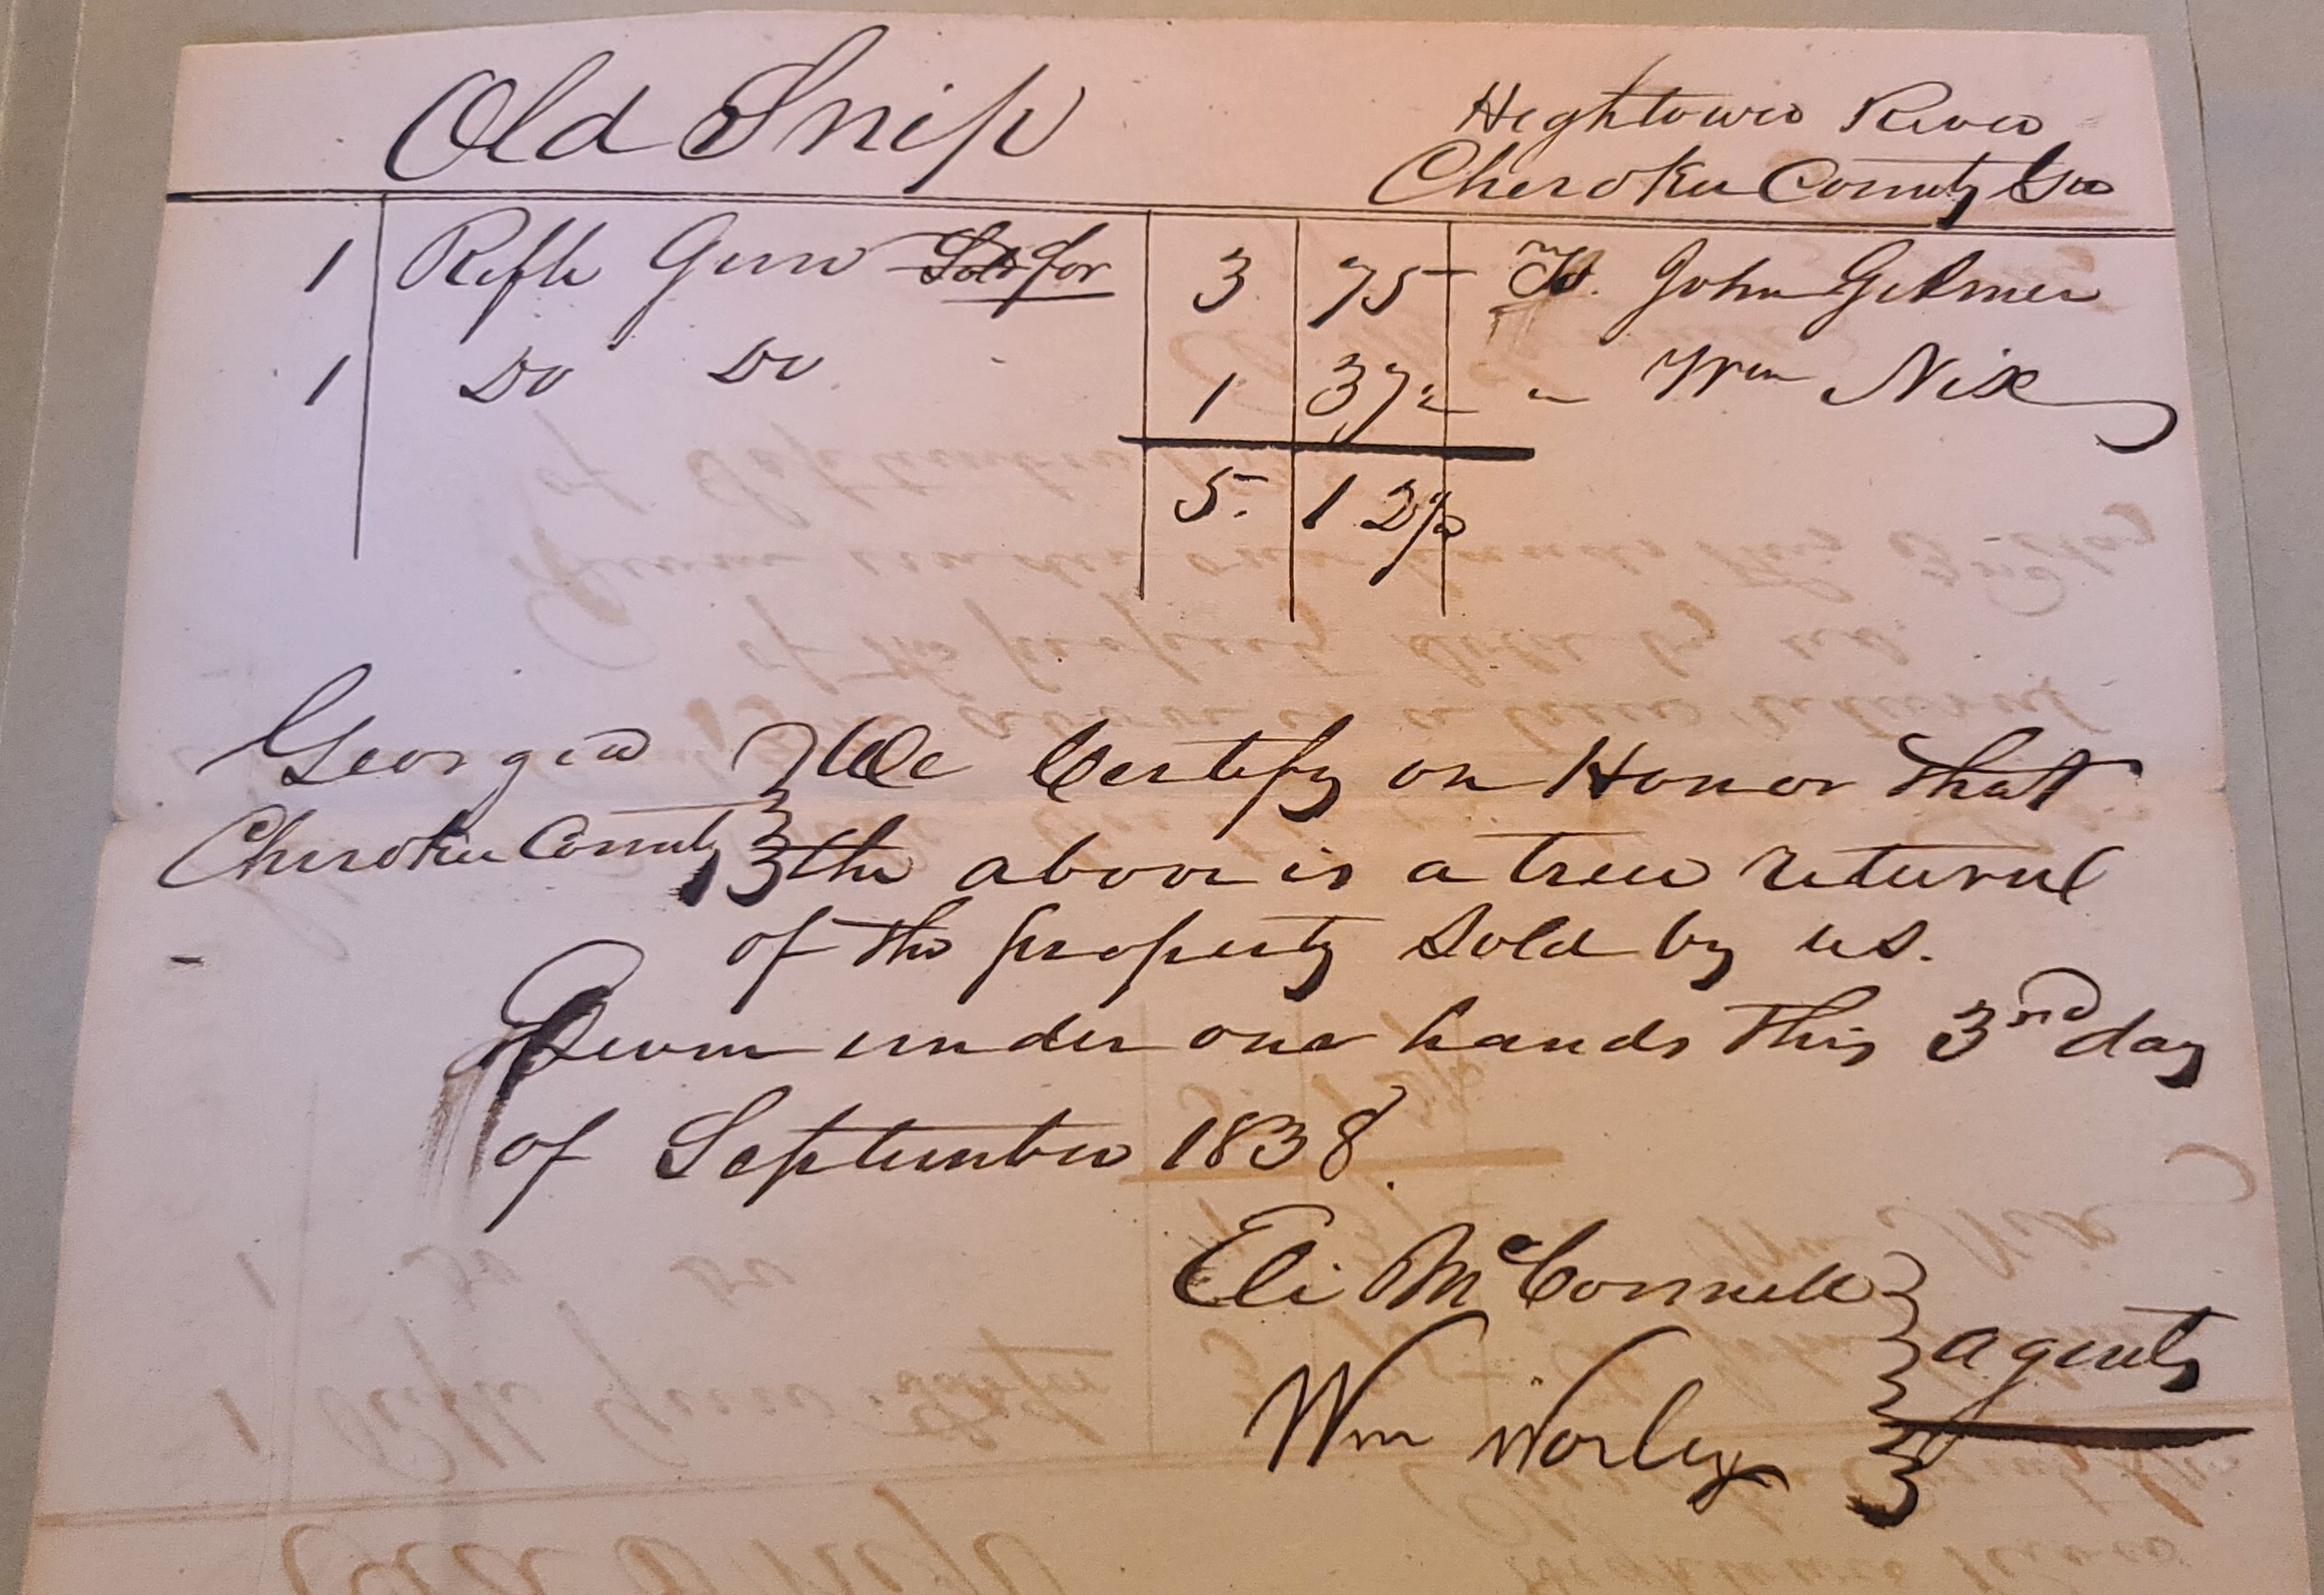 Old Snip
Hightower River
Cherokee County Geo
1 Rifle Gun Sold for 3 75 To John Gilmer
1 Do Do 1 37½ " Wm Nix
5. 12½
Georgia } We Certify on Honor that
Cherokee County } the above is a true return
of the property Sold by us.
Given under our hands this 3rd day
of September 1838.
Eli McConnell }
Wm Worley } agents